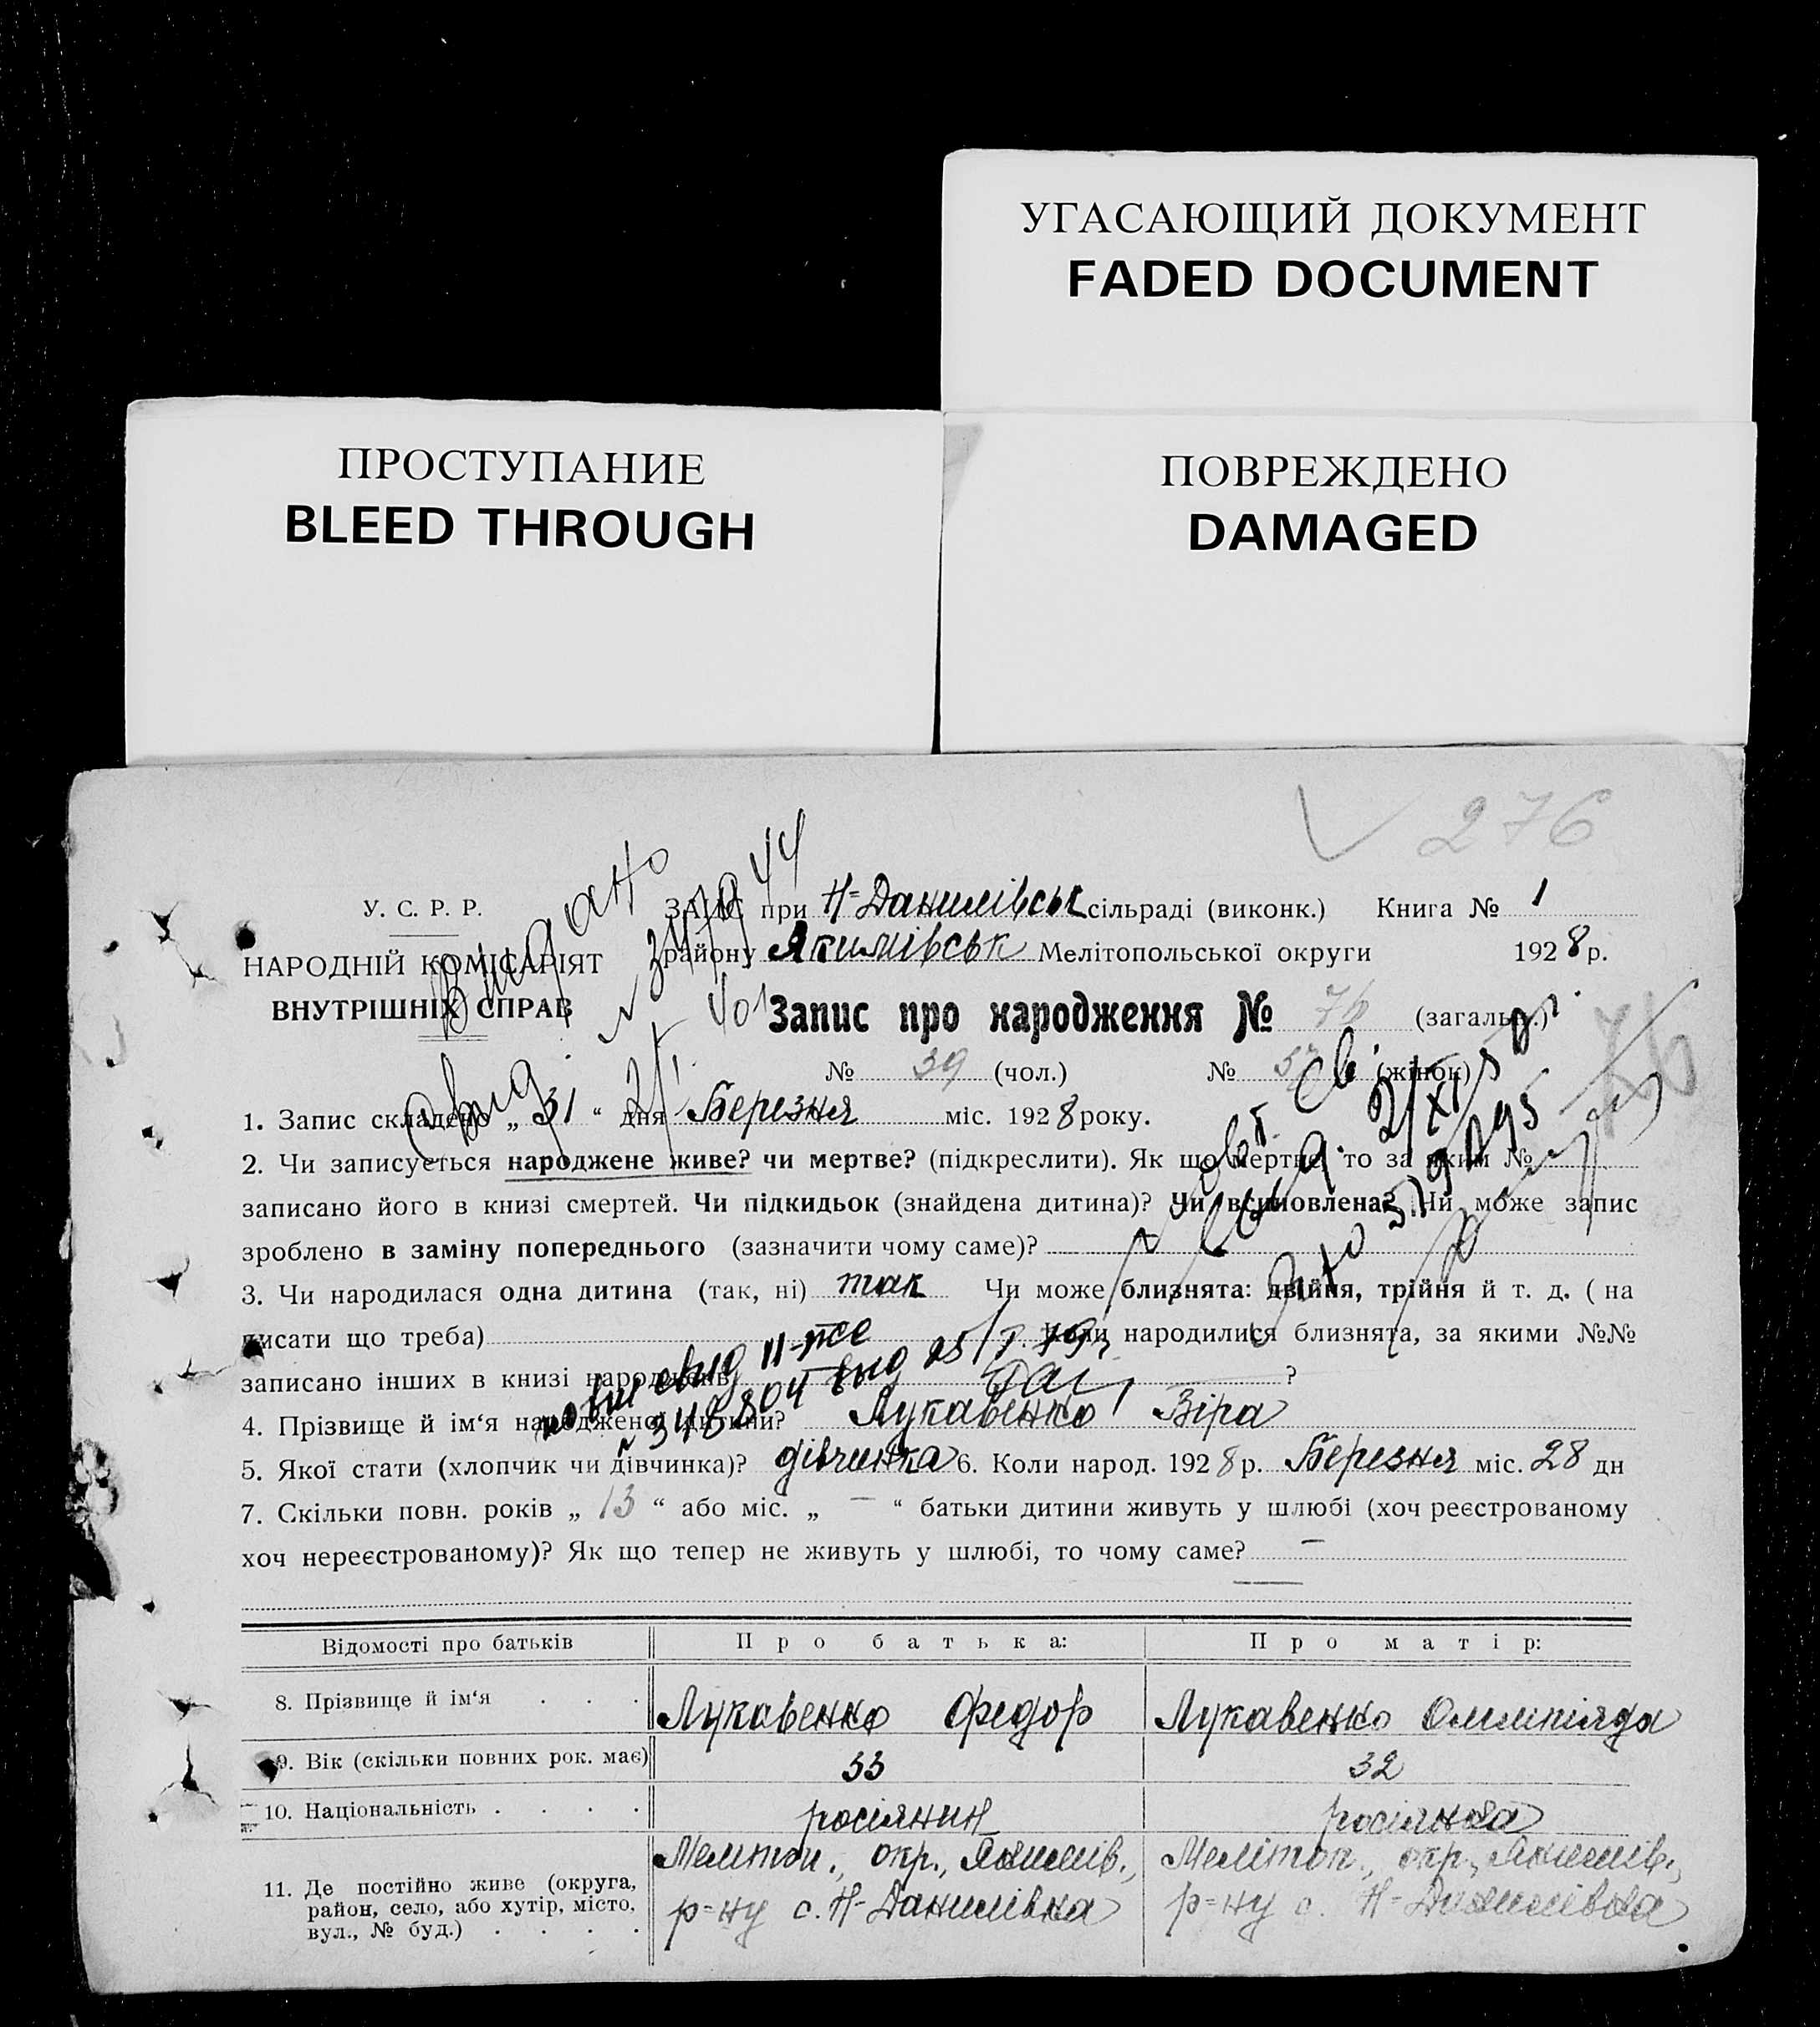 УГАСАЮЩИЙ ДОКУМЕНТ
FADED DOCUMENT
ПРОСТУПАНИЕ
BLEED THROUGH
ПОВРЕЖДЕНО
DAMAGED
276
У. С. Р. Р.
НАРОДНІЙ КОМІСАРІЯТ
ВНУТРІШНІХ СПРАВ
Видано
ЗАГС при Н-Данилівськ сільраді (виконк.) Книга № 1
району Якимівськ Мелітопольської округи 1928 р.
Запис про народження № 76 (загальн.)
76
№ 39 (чол.) № 37 (жінок)
1. Запис складено „ 31 “ дня Березня міс. 1928 року.
2. Чи записується народжене живе? чи мертве? (підкреслити). Як що мертве, то за яким №
записано його в книзі смертей. Чи підкидьок (знайдена дитина)? Чи всиновлена? Чи може запис
зроблено в заміну попереднього (зазначити чому саме)?
3. Чи народилася одна дитина (так, ні) так Чи може близнята: двійня, трійня й т. д. ( на
писати що треба) Коли народилися близнята, за якими №№
записано інших в книзі народжень ?
4. Прізвище й ім‘я народженої дитини? Лукавенко Віра
5. Якої стати (хлопчик чи дівчинка)? дівчинка 6. Коли народ. 1928 р. Березня міс. 28 дн
7. Скільки повн. років „ 13 “ або міс. „ — “ батьки дитини живуть у шлюбі (хоч реєстрованому
хоч нереєстрованому)? Як що тепер не живуть у шлюбі, то чому саме? —
Відомості про батьків Про батька: Про матір:
8. Прізвище й ім‘я . . . Лукавенко Федор Лукавенко Олимпіяда
9. Вік (скільки повних рок. має) 33 32
10. Національність . . . . росіянин росіянка
11. Де постійно живе (округа, район, село, або хутір, місто, вул., № буд.) . . . .
Мелітоп., окр., Якимів., Мелітоп., окр., Якимів.,
р-ну с. Н-Данилівка р-ну с. Н-Данилівка